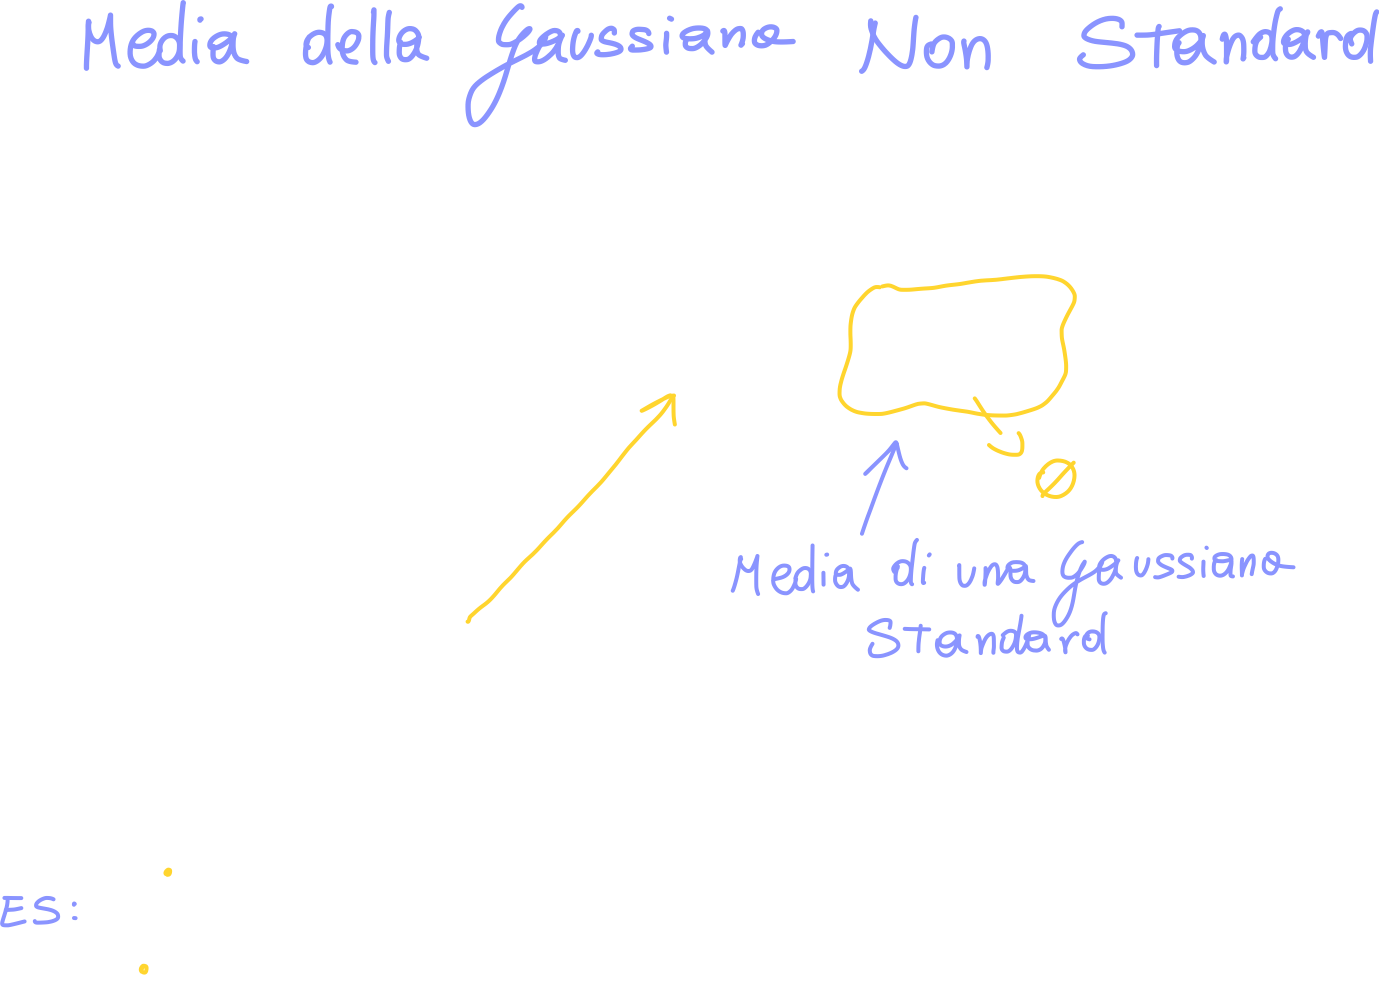 Media della Gaussiana Non Standard
Ø
Media di una Gaussiana
Standard
ES: